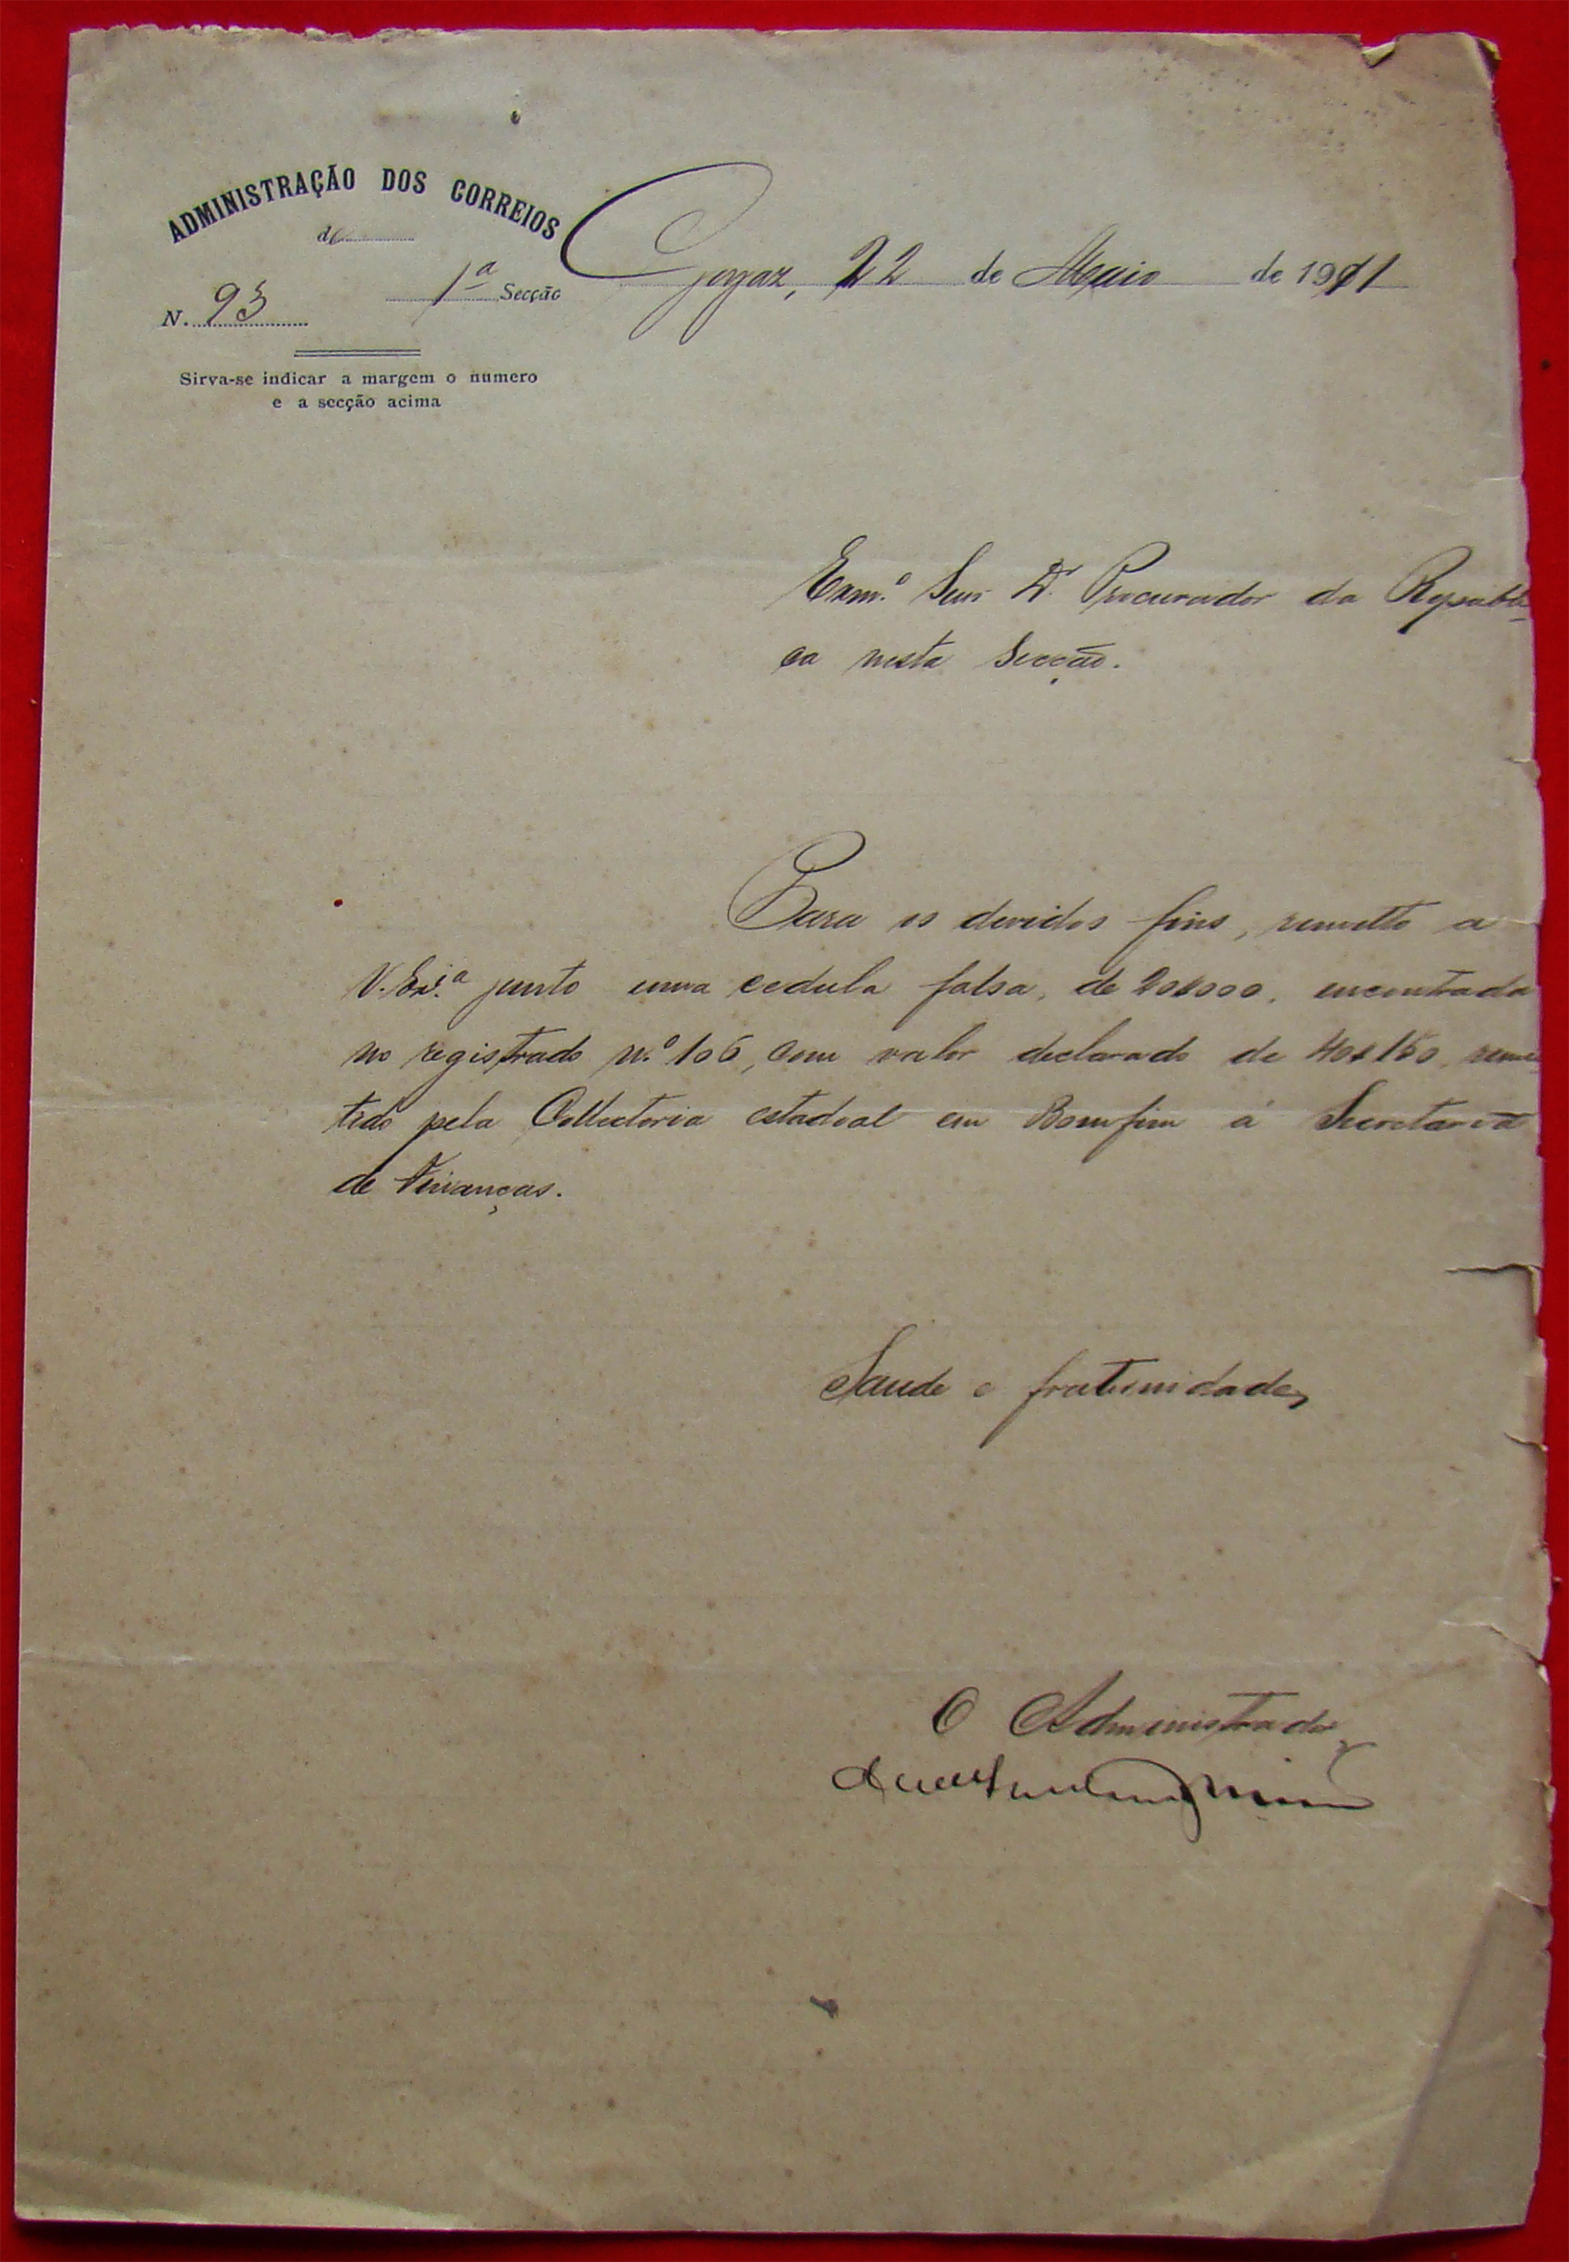 ADMINISTRAÇÃO DOS CORREIOS
de
1ª Secção
N. 93
Goyaz, 22 de Maio de 1911
Sirva-se indicar a margem o numero
e a secção acima
Exmº. Snr. Dr. Procurador da Republi-
ca nesta Secção.
Para os devidos fins, remetto a
V. Exª. junto uma cedula falsa, de 20$000, encontrada
no registrado n.º 106, com valor declarado de 40$150, reme-
tido pela Collectoria estadoal em Bomfim á Secretaria
de Finanças.
Saude e fraternidade,
O Administrador